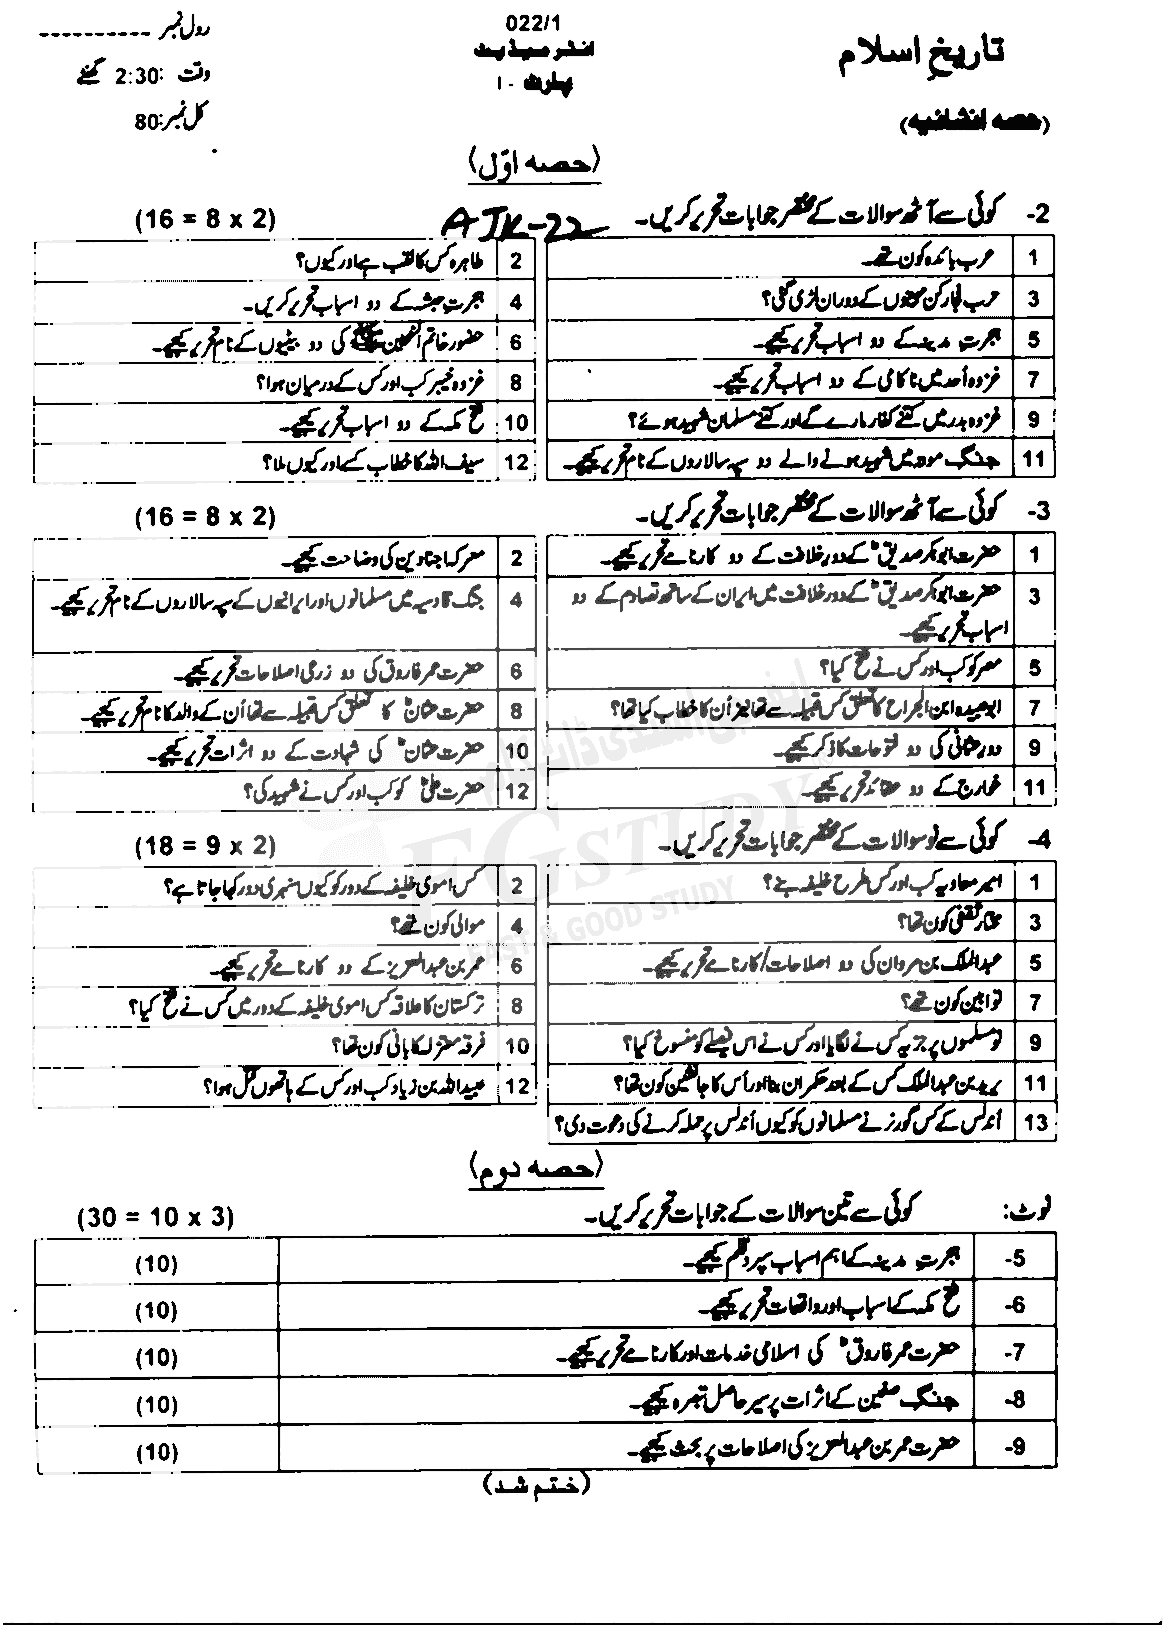 022/1
رول نمبر ----------
انٹرمیڈیٹ
تاریخ اسلام
وقت :2:30 گھنٹے
پارٹ - I
کل نمبر:80
(حصہ انشائیہ)
(حصہ اوّل)
2- کوئی سے آٹھ سوالات کے مختصر جوابات تحریر کریں۔ (16 = 8 x 2)
AJK-22
1 عرب بائدہ کون تھے۔
2 طاہرہ کس کا لقب ہے اور کیوں؟
3 حرب فجار کن مہینوں کے دوران لڑی گئی؟
4 ہجرتِ حبشہ کے دو اسباب تحریر کریں۔
5 ہجرتِ مدینہ کے دو اسباب تحریر کیجیے۔
6 حضور خاتم النبیین ﷺ کی دو بیٹیوں کے نام تحریر کیجیے۔
7 غزوہ احد میں ناکامی کے دو اسباب تحریر کیجیے۔
8 غزوہ خیبر کب اور کس کے درمیان ہوا؟
9 غزوہ بدر میں کتنے کفار مارے گئے اور کتنے مسلمان شہید ہوئے؟
10 فتح مکہ کے دو اسباب تحریر کیجیے۔
11 جنگ موتہ میں شہید ہونے والے دو سپہ سالاروں کے نام تحریر کیجیے۔
12 سیف اللہ کا خطاب کسے اور کیوں ملا؟
3- کوئی سے آٹھ سوالات کے مختصر جوابات تحریر کریں۔ (16 = 8 x 2)
1 حضرت ابوبکر صدیقؓ کے دورِ خلافت کے دو کارنامے تحریر کیجیے۔
2 معرکہ اجنادین کی وضاحت کیجیے۔
3 حضرت ابوبکر صدیقؓ کے دورِ خلافت میں ایران کے ساتھ تصادم کے دو
اسباب تحریر کیجیے۔
4 جنگ قادسیہ میں مسلمانوں اور ایرانیوں کے سپہ سالاروں کے نام تحریر کیجیے۔
5 مصر کو کب اور کس نے فتح کیا؟
6 حضرت عمر فاروق کی دو زرعی اصلاحات تحریر کیجیے۔
7 ابو عبیدہ ابن الجراح کا تعلق کس قبیلہ سے تھا نیز اُن کا خطاب کیا تھا؟
8 حضرت عثمانؓ کا تعلق کس قبیلہ سے تھا اُن کے والد کا نام تحریر کیجیے۔
9 دورِ عثمانی کی دو فتوحات کا ذکر کیجیے۔
10 حضرت عثمانؓ کی شہادت کے دو اثرات تحریر کیجیے۔
11 خوارج کے دو عقائد تحریر کیجیے۔
12 حضرت علیؓ کو کب اور کس نے شہید کی؟
4- کوئی سے نو سوالات کے مختصر جوابات تحریر کریں۔ (18 = 9 x 2)
1 امیر معاویہ کب اور کس طرح خلیفہ بنے؟
2 کس اموی خلیفہ کے دور کو کیوں سنہری دور کہا جاتا ہے؟
3 مختار ثقفی کون تھا؟
4 موالی کون تھے؟
5 عبدالملک بن مروان کی دو اصلاحات/کارنامے تحریر کیجیے۔
6 عمر بن عبدالعزیز کے دو کارنامے تحریر کیجیے۔
7 توابین کون تھے؟
8 ترکستان کا علاقہ کس اموی خلیفہ کے دور میں کس نے فتح کیا؟
9 نو مسلموں پر جزیہ کس نے لگایا اور کس نے اس فیصلے کو منسوخ کیا؟
10 فرقہ معتزلہ کا بانی کون تھا؟
11 یزید بن عبدالملک کس کے بعد حکمران بنا اور اُس کا جانشین کون تھا؟
12 عبیداللہ بن زیاد کب اور کس کے ہاتھوں قتل ہوا؟
13 اُندلس کے کس گورنر نے مسلمانوں کو کیوں اُندلس پر حملہ کرنے کی دعوت دی؟
(حصہ دوم)
نوٹ: کوئی سے تین سوالات کے جوابات تحریر کریں۔ (30 = 10 x 3)
5- ہجرتِ مدینہ کے اہم اسباب سپرد قلم کیجیے۔ (10)
6- فتح مکہ کے اسباب اور واقعات تحریر کیجیے۔ (10)
7- حضرت عمر فاروقؓ کی اسلامی خدمات اور کارنامے تحریر کیجیے۔ (10)
8- جنگ صفین کے اثرات پر سیر حاصل تبصرہ کیجیے۔ (10)
9- حضرت عمر بن عبدالعزیز کی اصلاحات پر بحث کیجیے۔ (10)
(ختم شد)
FG STUDY
EASY & GOOD STUDY